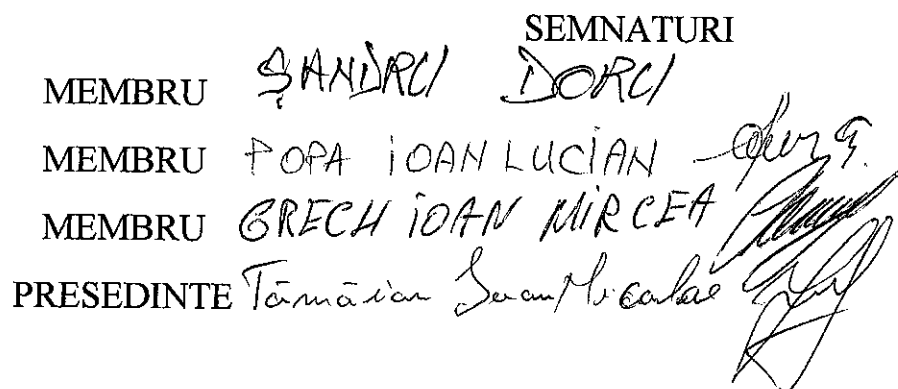 SEMNATURI
MEMBRU ŞANDRU DORU
MEMBRU POPA IOAN LUCIAN
MEMBRU GRECU IOAN MIRCEA
PRESEDINTE Tămăian Ioan Nicolae